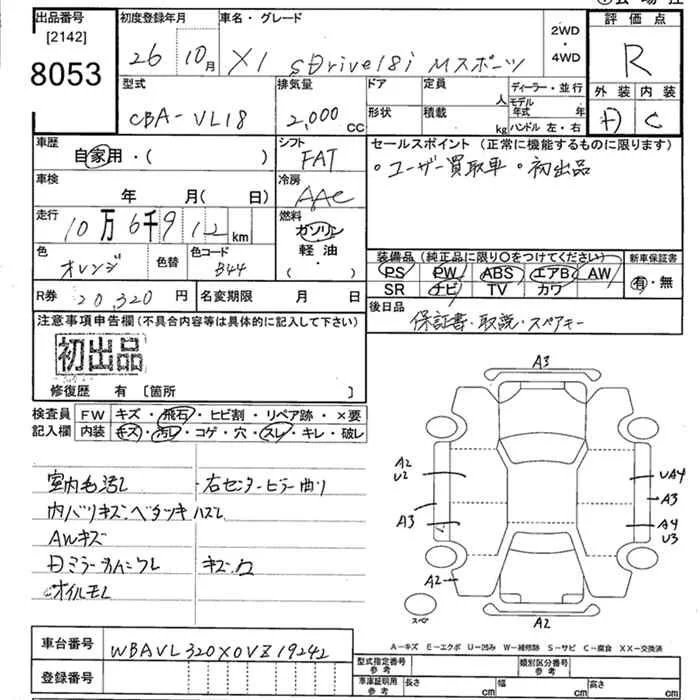 出品番号
[2142]
8053
初度登録年月
26 10月
車名・グレード
X1 sDrive18i Mスポーツ
2WD
・
4WD
評価点
R
型式
CBA-VL18
排気量
2,000 CC
ドア
形状
定員
人
積載
kg
ディーラー・並行
モデル
年式 年
ハンドル 左・右
外装 内装
D C
車歴
自家用・( )
シフト
FAT
セールスポイント (正常に機能するものに限ります)
・ユーザー買取車 ・初出品
車検
年 月( 日)
冷房
AAC
走行
10万6千912km
燃料
ガソリン
軽油・
( )
色
オレンジ
色替
色コード
B44
装備品 (純正品に限り○をつけてください)
PS PW ABS エアB AW
SR ナビ TV カワ
新車保証書
有・無
R券 20,320円
名変期限 月 日
後日品
保証書・取説・スペアキー
注意事項申告欄 (不具合内容等は具体的に記入して下さい)
初出品
修復歴 有 〔箇所 〕
検査員 FW キズ・飛石・ヒビ割・リペア跡・×要
記入欄 内装 キズ・汚レ・コゲ・穴・スレ・キレ・破レ
室内毛汚レ
右センターピラー曲り
内バリキズ・ベタツキ ハズレ
AWキズ
キズ
オイルモレ
A3
A2
U2
UA4
A3
A3
A4
U3
A2
A2
スペア
車台番号 WBAVL320X0VZ19242
登録番号
A-キズ E-エクボ U-凹み W-補修跡 S-サビ C-腐食 XX-交換済
型式指定番号
参考
類別区分番号
参考
車庫証明用
参考
長さ cm 幅 cm 高さ cm